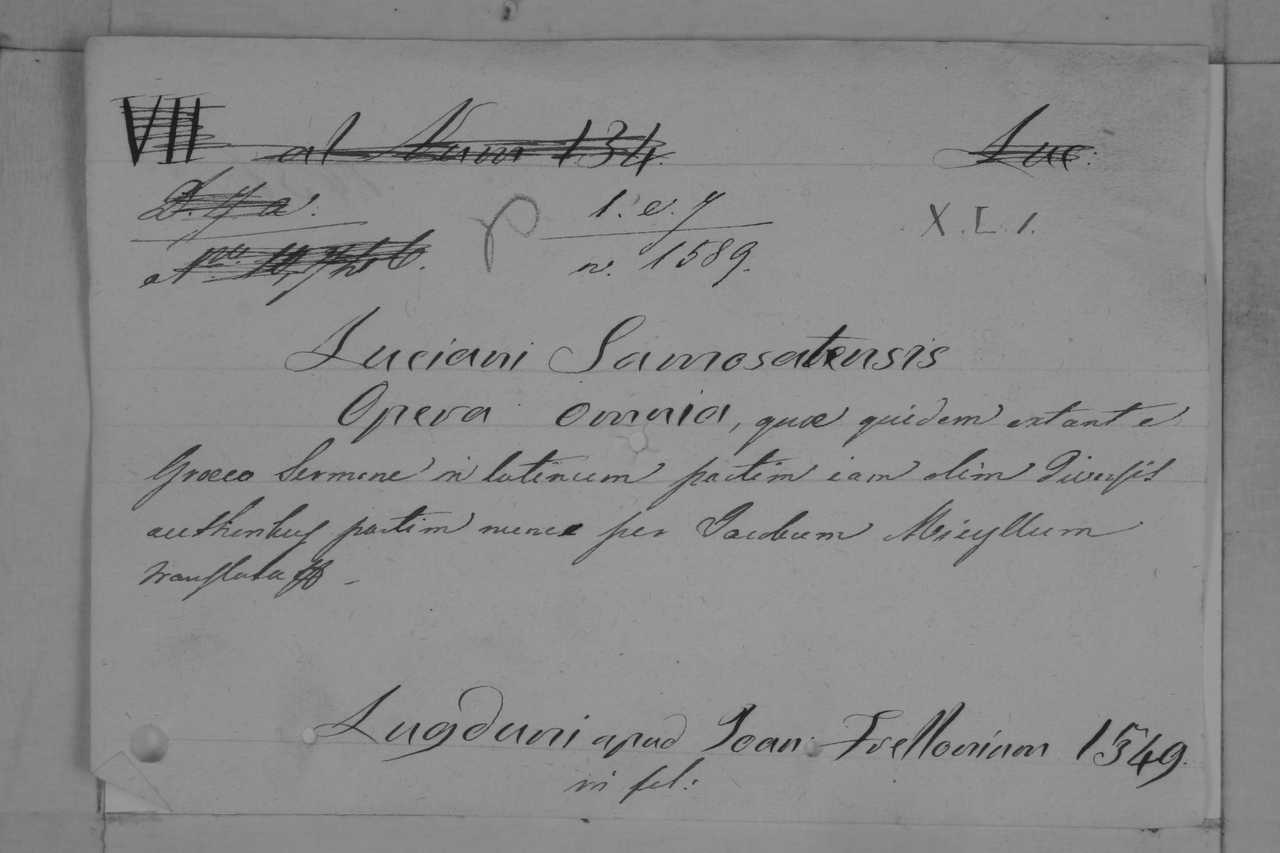 VII al Num 134. Luc:
D. y a. 1. e. y X.L.1.
n. 1589.
Luciani Samosatensis
Opera omnia, quæ quidem extant e
Græco sermone in latinum partim iam olim diversis
authoribus partim nunc per Jacobum Micyllum
translata
Lugduni apud Joan: Frellonium 1549.
in fol: